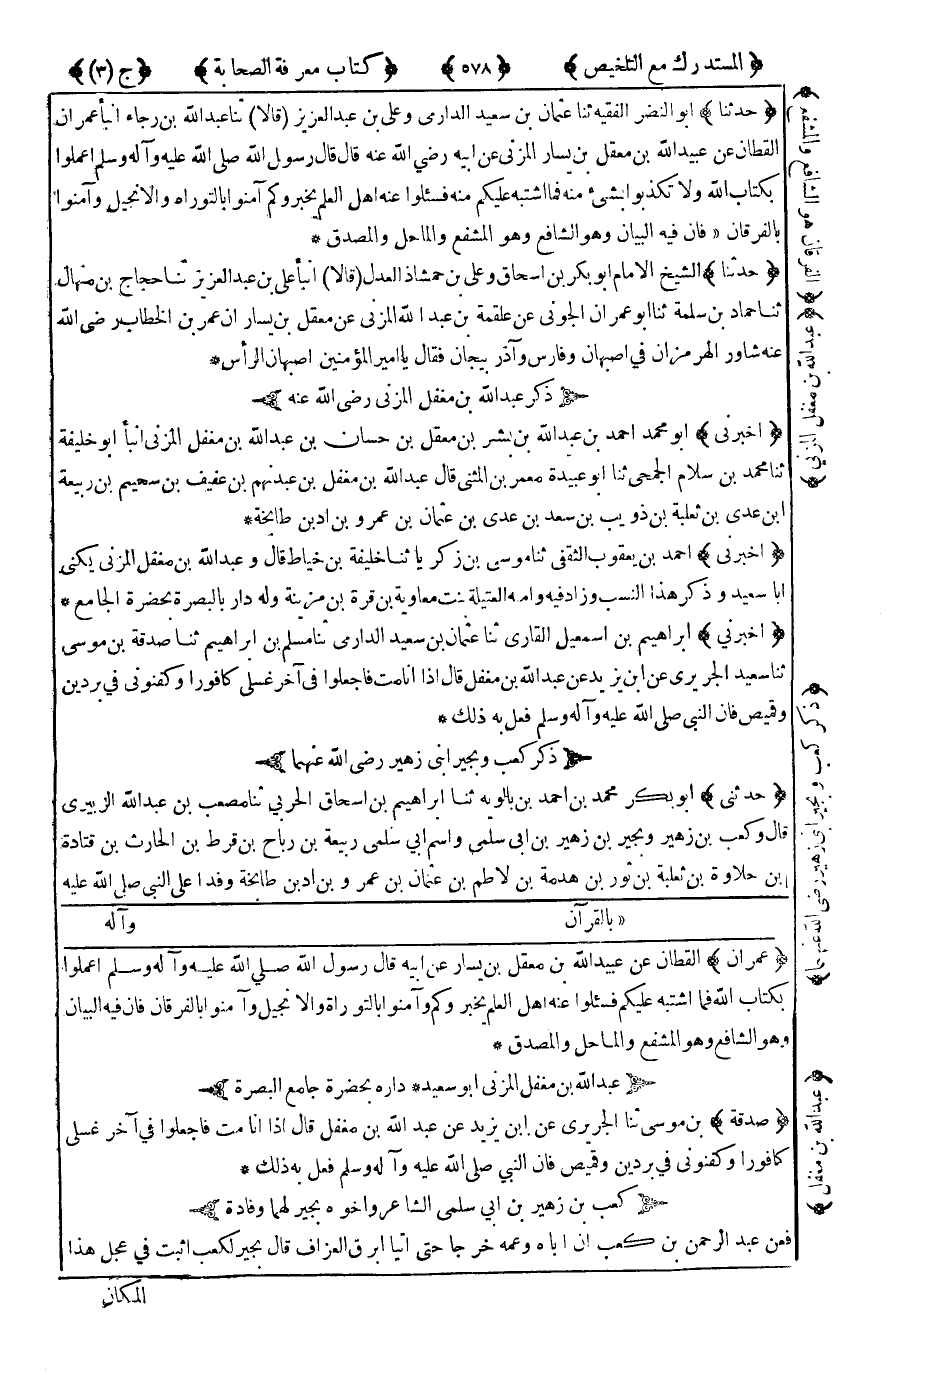 ﴿ المستدرك مع التلخيص ﴾ ﴿ ٥٧٨ ﴾ ﴿ كتاب معرفة الصحابة ﴾ ﴿ ج (٣) ﴾
﴿ حدثنا ﴾ ابو النضر الفقيه ثنا عثمان بن سعيد الدارى وعلى بن عبد العزيز (قالا) ثنا عبد الله بن رجاء انبأ عمران
القطان عن عبيد الله بن معقل بن يسار المزنى عن ابيه رضي الله عنه قال قال رسول الله صلى الله عليه وآله وسلم اعملوا
بكتاب الله ولا تكذبوا بشئ منه فما اشتبه عليكم منه فسئلوا عنه اهل العلم يخبروكم آمنوا بالتوراه والانجيل وآمنوا
بالفرقان « فان فيه البيان وهو الشافع وهو المشفع والماحل والمصدق *
﴿ حدثنا ﴾ الشيخ الامام ابو بكر بن اسحاق وعلى بن حمشاذ العدل (قالا) انبأ على بن عبد العزيز ثنا حجاج بن منهال
ثنا حماد بن سلمة ثنا ابو عمران الجونى عن علقمة بن عبد الله المزنى عن معقل بن يسار ان عمر بن الخطاب رضى الله
عنه شاور الهرمزان في اصبهان وفارس وآذر بيجان فقال يا امير المؤمنين اصبهان الرأس *
ذكر عبد الله بن مغفل المزنى رضى الله عنه
﴿ اخبرنى ﴾ ابو محمد احمد بن عبد الله بن بشر بن معقل بن حسان بن عبد الله بن مغفل المزنى انبأ ابو خليفة
ثنا محمد بن سلام الجمحى ثنا ابو عبيدة معمر بن المثنى قال عبد الله بن مغفل بن عبد نهم بن عفيف بن سحيم بن ربيعة
ابن عدى بن ثعلبة بن ذويب بن سعد بن عدى بن عثمان بن عمرو بن ادبن طابخة *
﴿ اخبرنى ﴾ احمد بن يعقوب الثقفى ثنا موسى بن زكريا ثنا خليفة بن خياط قال وعبد الله بن مغفل المزنى يكنى
ابا سعيد وذكر هذا النسب وزاد فيه وامه العتيلة بنت معاوية بن قرة بن مزينة وله دار بالبصرة بحضرة الجامع *
﴿ اخبرني ﴾ ابراهيم بن اسمعيل القارى ثنا عثمان بن سعيد الدارى ثنا مسلم بن ابراهيم ثنا صدقة بن موسى
ثنا سعيد الجريرى عن ابن يزيد عن عبد الله بن مغفل قال اذا انا مت فاجعلوا فى آخر غسلى كافورا وكفنونى في بردين
وقميص فان النبى صلى الله عليه وآله وسلم فعل به ذلك *
ذكر كعب وبجير ابنى زهير رضى الله عنهما
﴿ حدثنى ﴾ ابو بكر محمد بن احمد بن بالويه ثنا ابراهيم بن اسحاق الحربي ثنا مصعب بن عبد الله الزبيرى
قال وكعب بن زهير وبجير بن زهير بن ابى سلمى واسم ابي سلمى ربيعة بن رباح بن قرط بن الحارث بن قتادة
ابن حلاوة بن ثعلبة بن ثور بن هدمة بن لاطم بن عثمان بن عمرو بن ادبن طابخة وفدا على النبى صلى الله عليه
« بالقرآن وآله
﴿ عمران ﴾ القطان عن عبيد الله بن معقل بن يسار عن ابيه قال رسول الله صلى الله عليه وآله وسلم اعملوا
بكتاب الله فما اشتبه عليكم فسئلوا عنه اهل العلم يخبروكم وآمنوا بالتوراة والانجيل وآمنوا بالفرقان فان فيه البيان
وهو الشافع وهو المشفع والماحل والمصدق *
عبد الله بن مغفل المزنى ابو سعيد * داره بحضرة جامع البصرة
﴿ صدقة ﴾ بن موسى ثنا الجريرى عن ابن يزيد عن عبد الله بن مغفل قال اذا انا مت فاجعلوا في آخر غسلى
كافورا وكفنونى في بردين وقميص فان النبي صلى الله عليه وآله وسلم فعل به ذلك *
كعب بن زهير بن ابي سلمى الشاعر واخوه بجير لهما وفادة
فعن عبد الرحمن بن كعب ان اباه وعمه خرجا حتى اتيا ابرق العزاف قال بجير لكعب اثبت في عجل هذا
المكان
﴿ الفرقان هو الشافع والمشفع ﴾
﴿ عبد الله بن مغفل المزني ﴾
﴿ ذكر كعب وبجير ابني زهير رضى الله عنهما ﴾
﴿ عبد الله بن مغفل ﴾